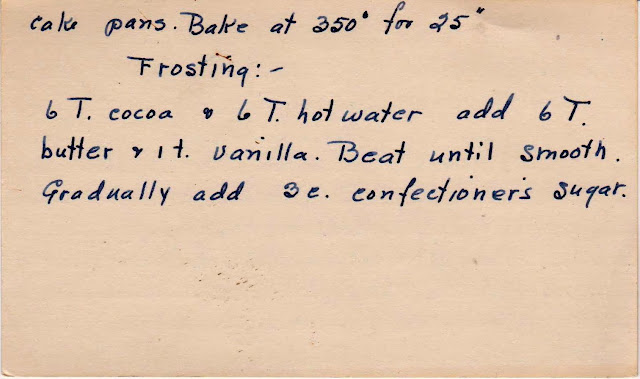 cake pans. Bake at 350° for 25"
Frosting:-
6 T. cocoa & 6 T. hot water add 6 T.
butter & 1 t. vanilla. Beat until smooth.
Gradually add 3 c. confectioner's sugar.